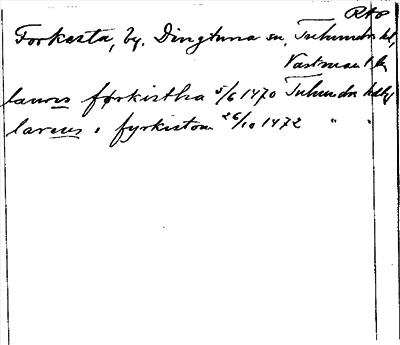 RA0
Forkesta, by. Dingtuna sn, Tuhundra hd,
Västman l. län
laurus førkistha 5/6 1470 Tuhundra hdbg
lareus i fyrkistom 26/10 1472 " "